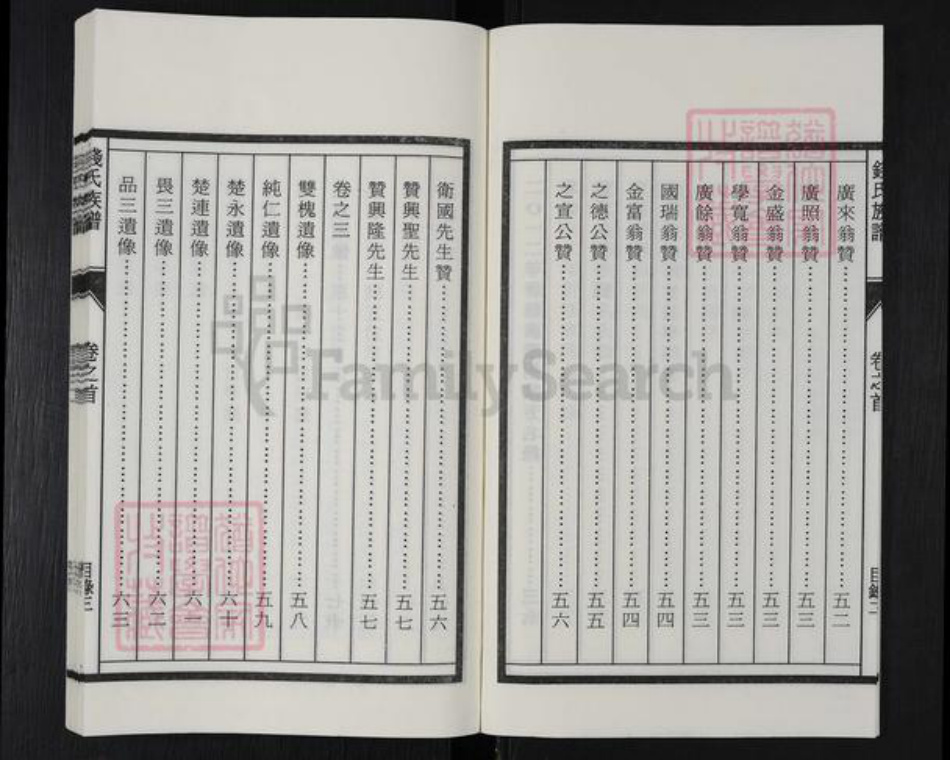 錢氏族譜
卷之首
目錄二
廣來翁贊 五二
廣照翁贊 五三
金盛翁贊 五三
學寬翁贊 五三
廣餘翁贊 五三
國瑞翁贊 五四
金富翁贊 五四
之德公贊 五五
之宣公贊 五六
衛國先生贊 五六
贊興聖先生 五七
贊興隆先生 五七
卷之三
雙槐遺像 五八
純仁遺像 五九
楚永遺像 六十
楚連遺像 六一
畏三遺像 六二
品三遺像 六三
錢氏族譜
卷之首
目錄三
FamilySearch